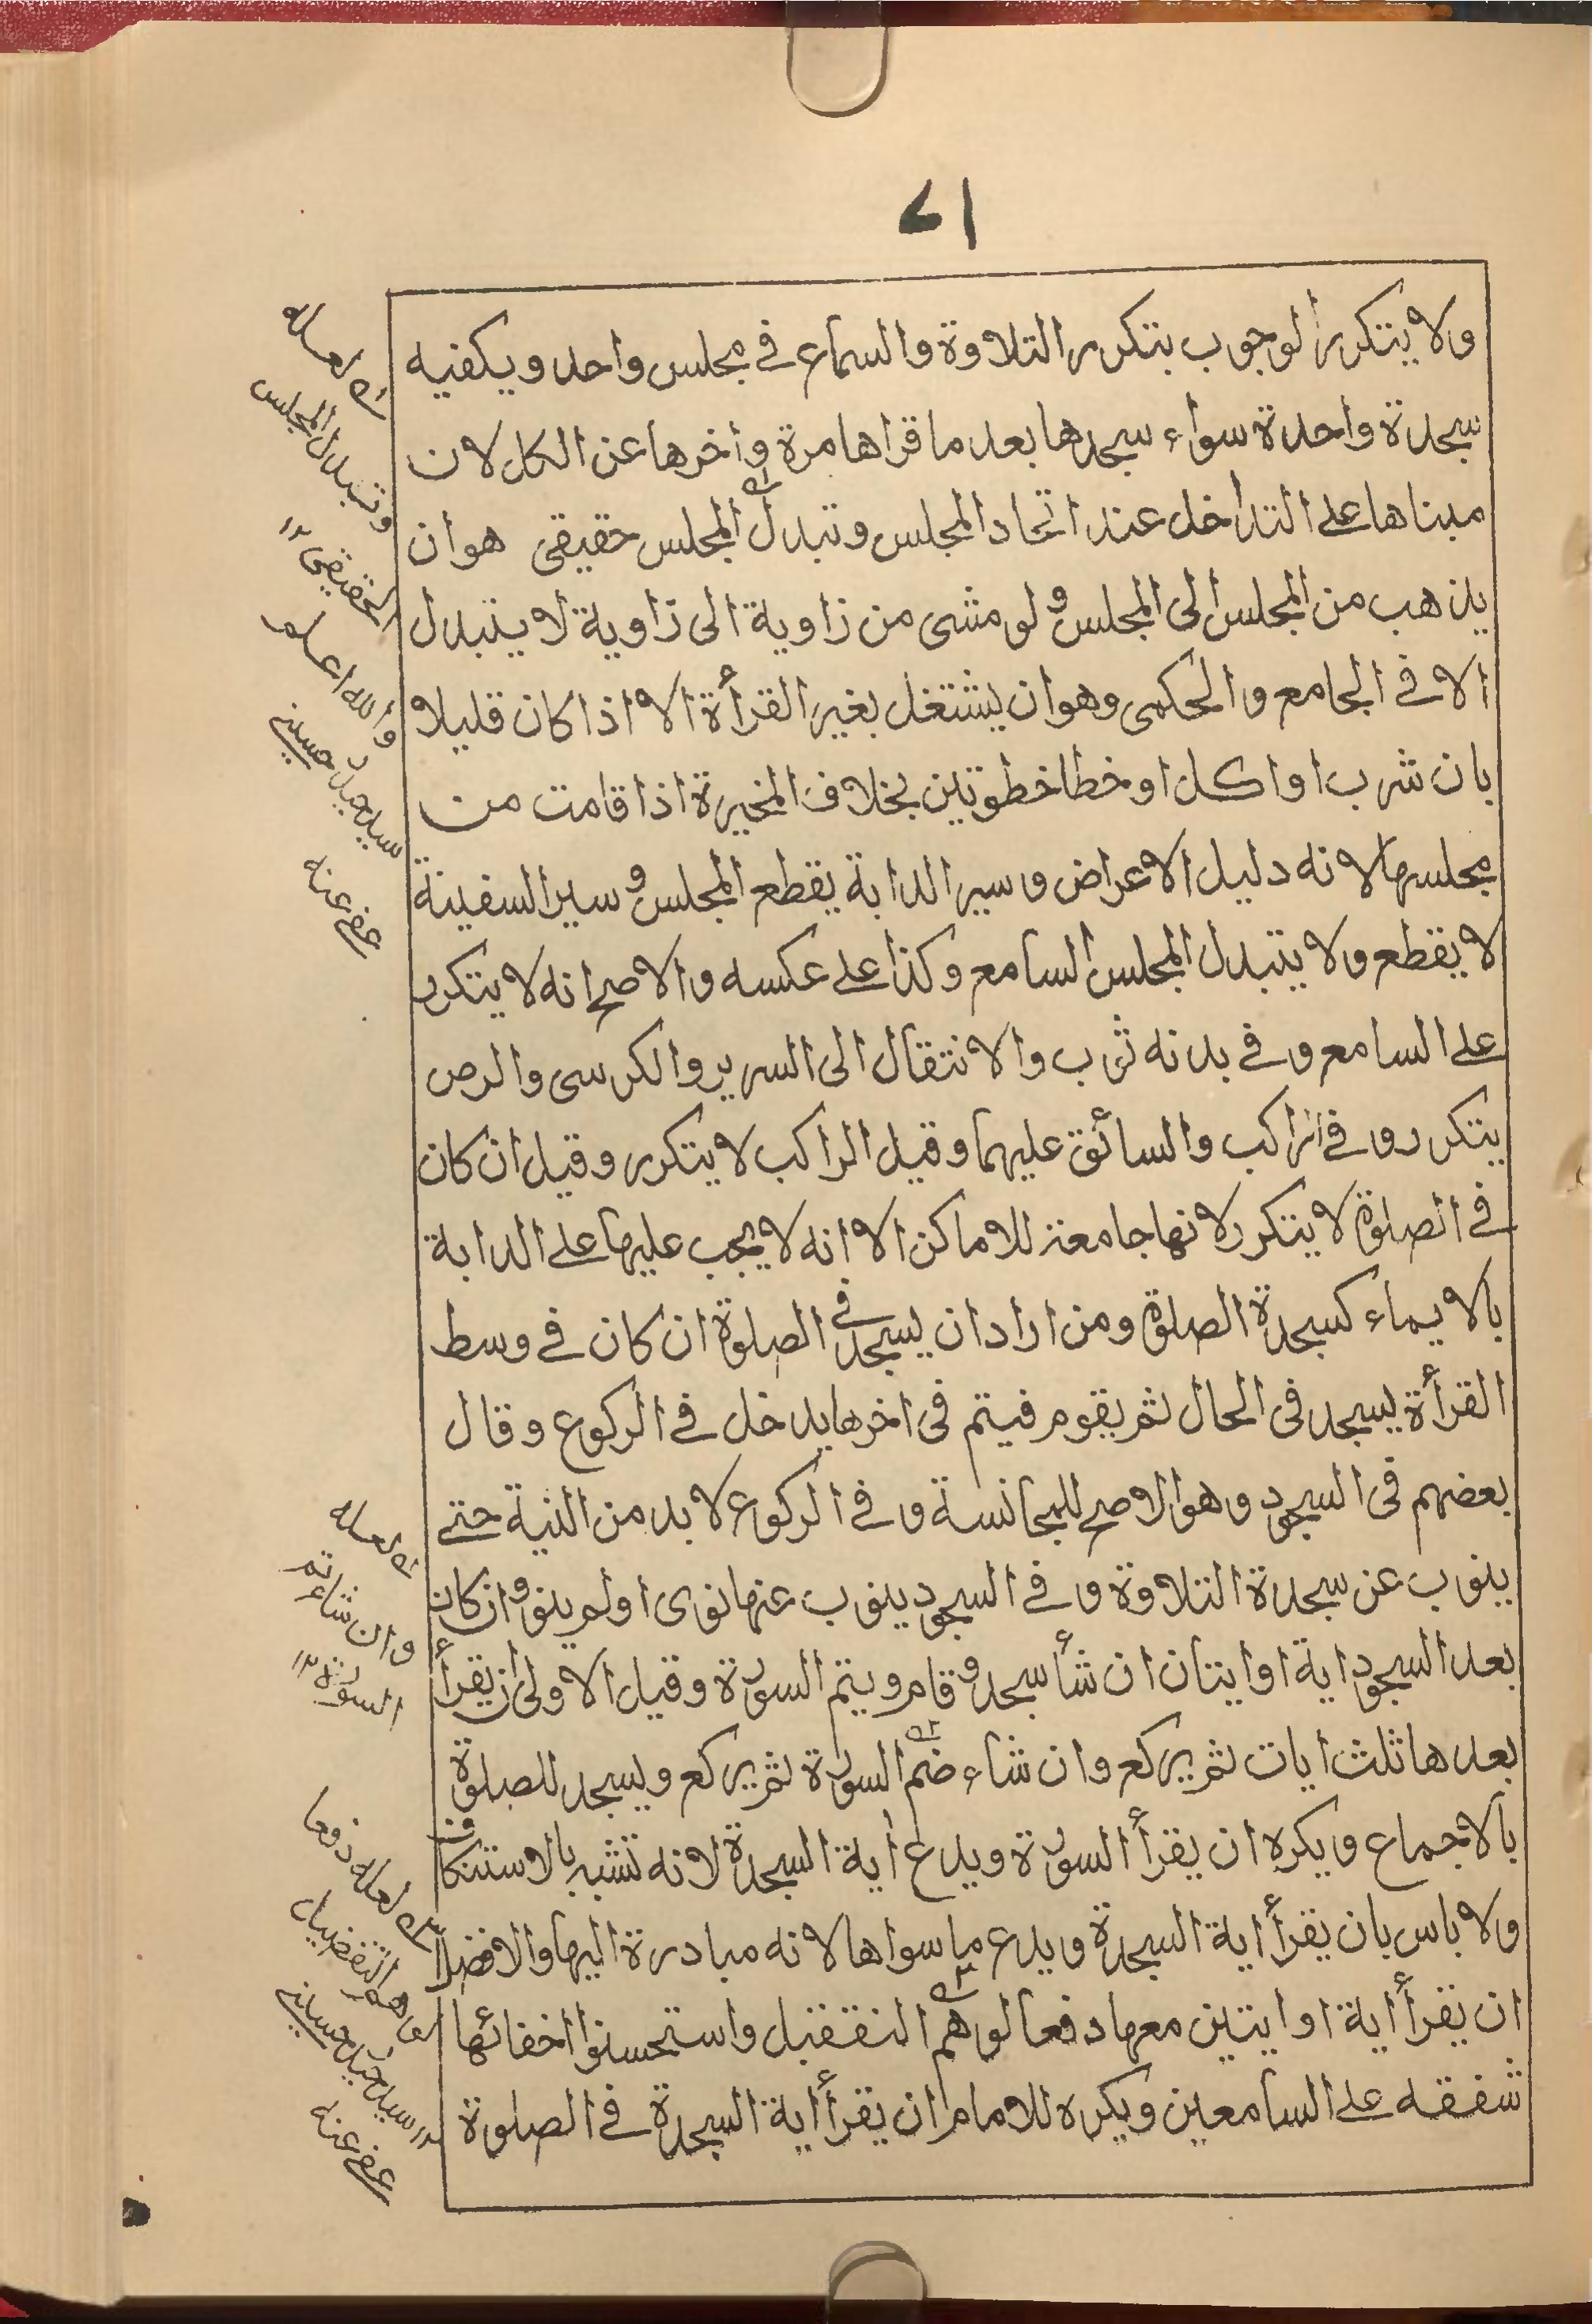 ١٧
ولا يتكرر الوجوب بتكرر التلاوة والسماع في مجلس واحد ويكفيه
سجدة واحدة سواء سجدها بعد ما قراها مرة وأخرها عن الكل لان
مبناها على التداخل عند اتحاد المجلس وتبدل المجلس حقيقي هو ان
يذهب من المجلس الى المجلس ولو مشى من زاوية الى زاوية لا يتبدل
الا في الجامع والحكمي وهو ان يشتغل بغير القرأة الا اذا كان قليلا
بان شرب او اكل او خطا خطوتين بخلاف المخيرة اذا قامت من
مجلسها لانه دليل الاعراض وسير الدابة يقطع المجلس وسير السفينة
لا يقطع ولا يتبدل المجلس السامع وكذا على عكسه والاصح انه لا يتكرر
على السامع وفي بدنه ثرب والانتقال الى السرير والكرسى والرص
يتكرر وفي الراكب والسائق عليهما وقيل الراكب لا يتكرر وقيل ان كان
في الصلوة لا يتكرر لانها جامعة للاماكن الا انه لا يجب عليها على الدابة
بالايماء كسجدة الصلوة ومن اراد ان يسجد في الصلوة ان كان في وسط
القرأة يسجد في الحال ثم يقوم فيتم في اخرها يدخل في الركوع وقال
بعضهم في السجود وهو الاصح للمجانسة وفي الركوع لا بد من النية حتى
ينوب عن سجدة التلاوة وفي السجود ينوب عنها نوى او لم ينو وان كان
بعد السجود اية او ايتان ان شأ سجد وقام ويتم السورة وقيل الاولى ان يقرأ
بعدها ثلث ايات ثم يركع وان شاء ضم السورة ثم يركع ويسجد للصلوة
بالاجماع ويكره ان يقرأ السورة ويدع اية السجدة لانه تشبه بالاستنكاف
ولا باس بان يقرأ اية السجدة ويدع ما سواها لانه مبادرة اليها والافضل
ان يقرأ اية او ايتين معها دفعا لوهم النقفتيل واستحسنوا اخفائها
شفقه على السامعين ويكره للامام ان يقرأ اية السجدة في الصلوة
له لعله
وتبدل المجلس
الحقيقى ١٢
والله اعلم
سيد حسينى
عفى عنه
له لعله
وان شاء تم
السورة ١٢
له لعله دفعا
لوهم التفضيل
١٢ سيد حسينى
عفى عنه